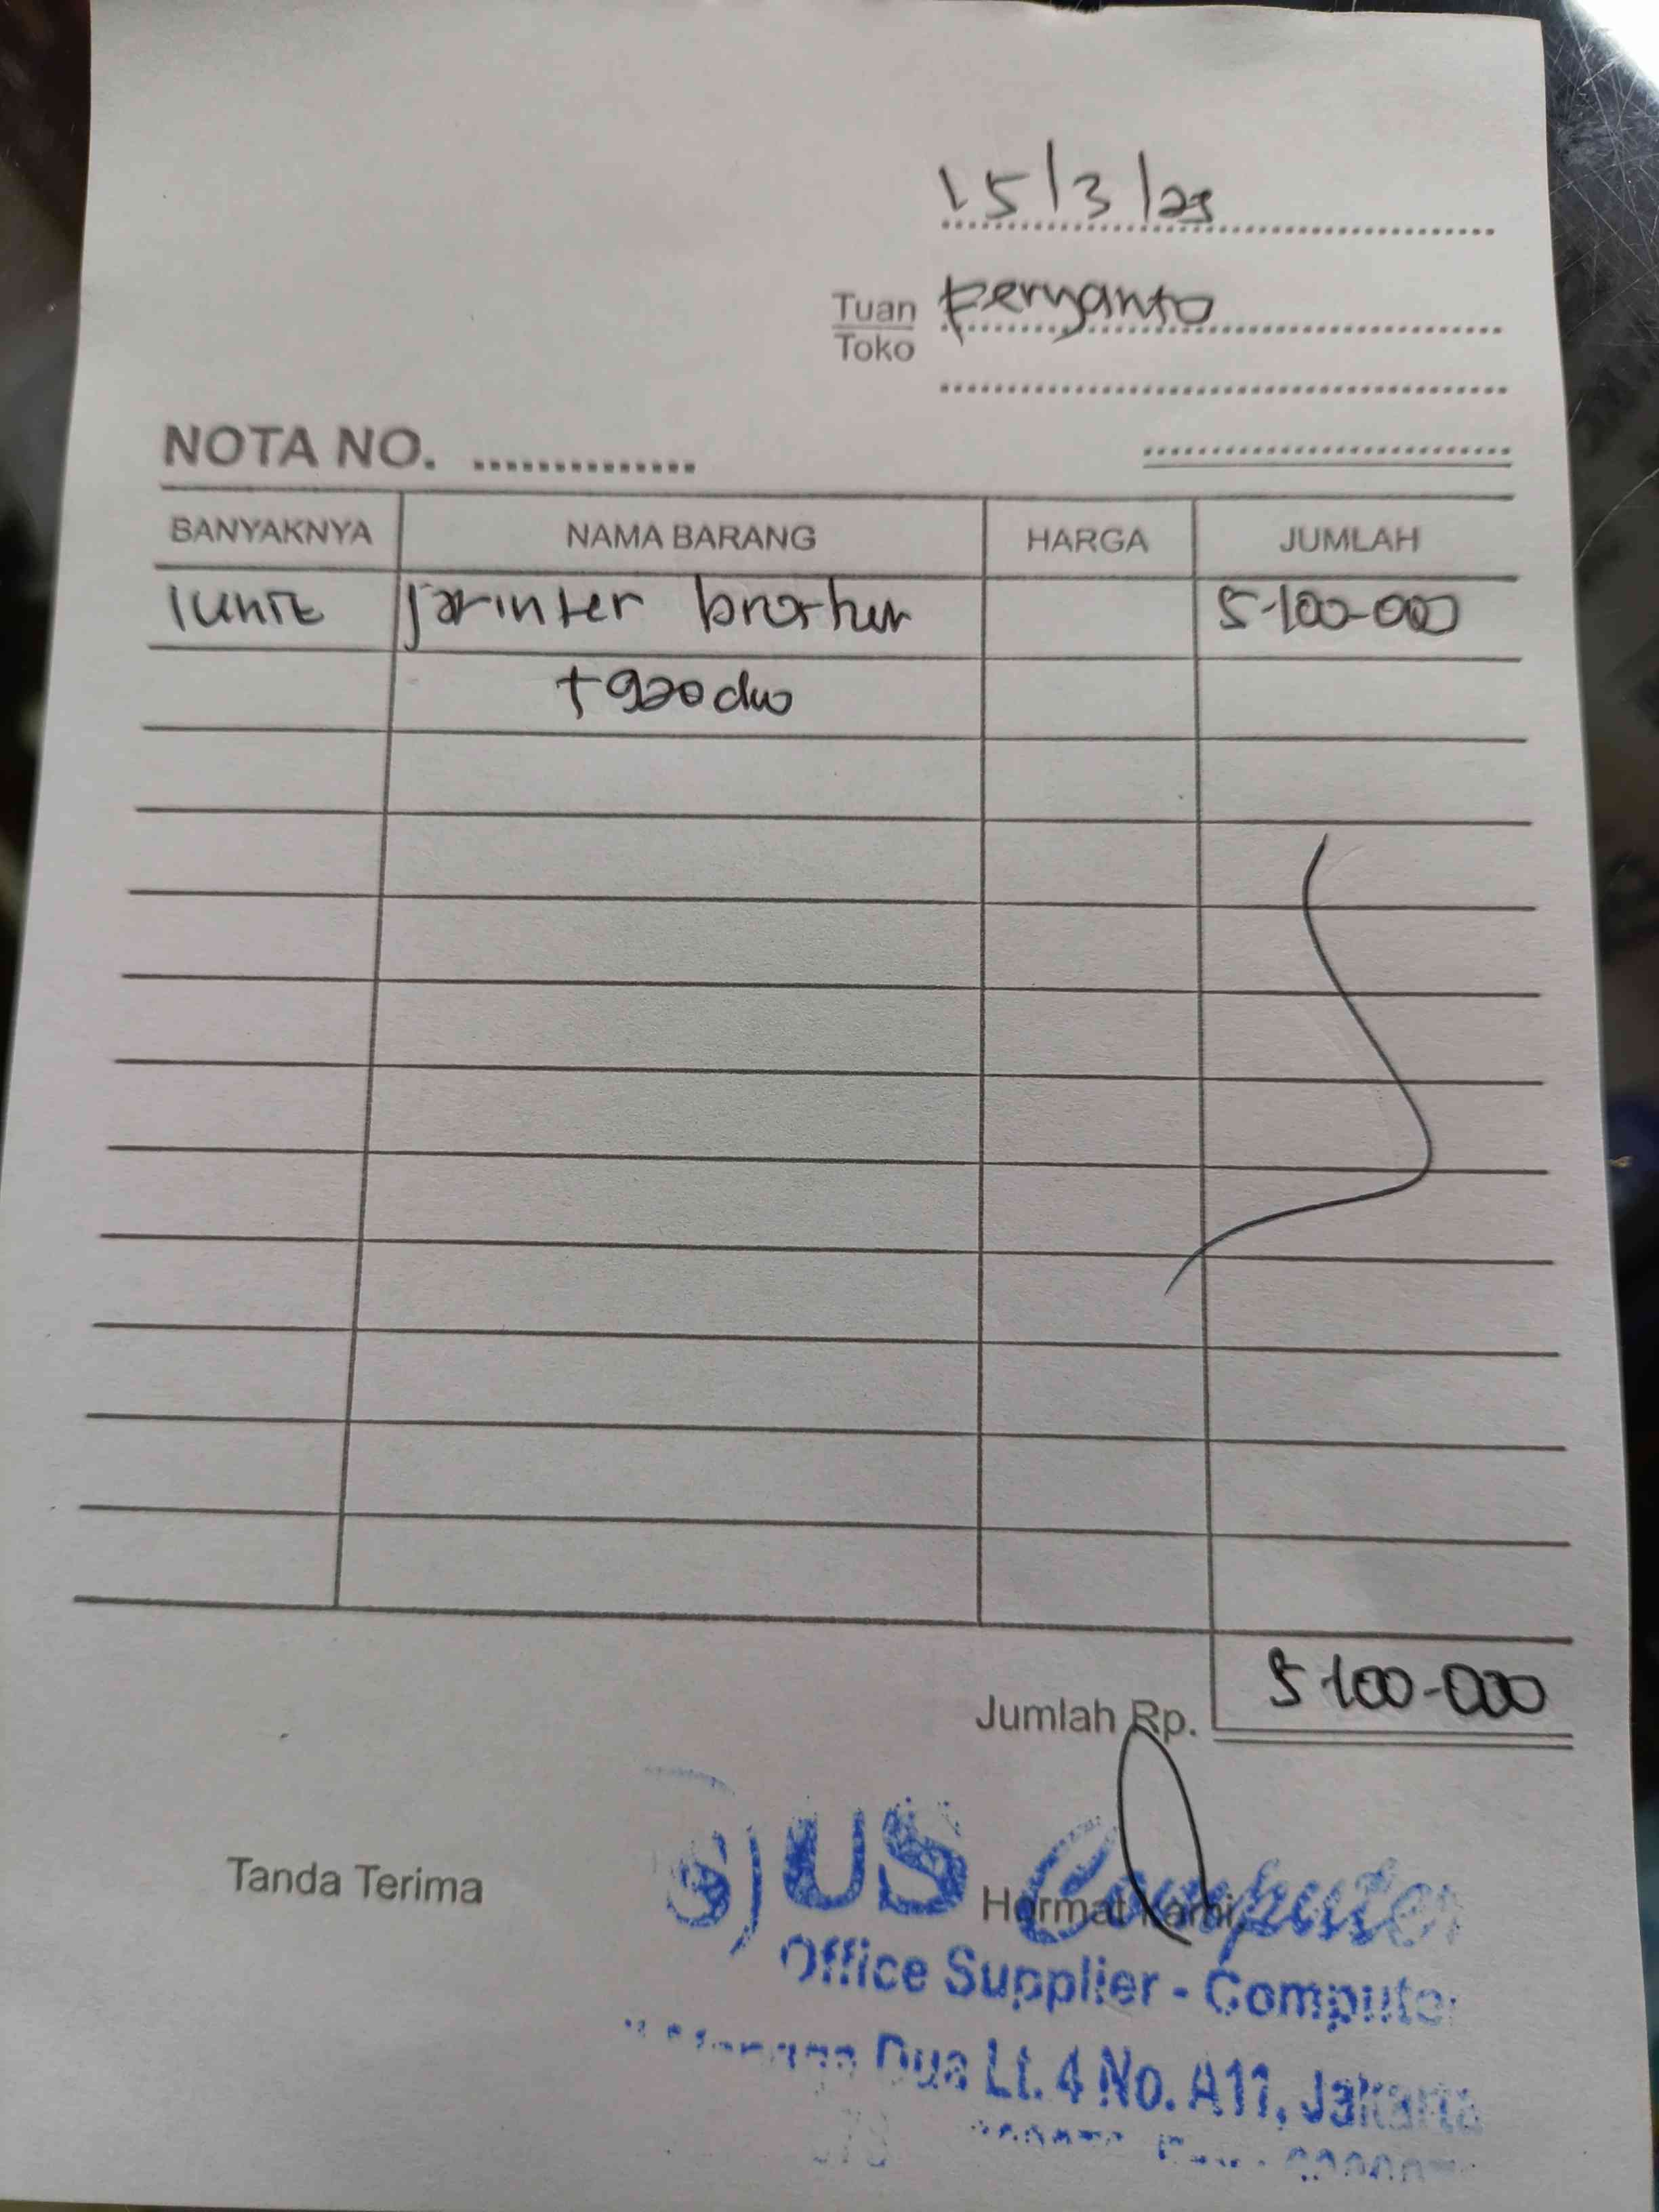 15/3/25
Tuan Feryanto
Toko
NOTA NO.
BANYAKNYA NAMA BARANG HARGA JUMLAH
1 unit printer brother 5.100.000
t920dw
Jumlah Rp. 5.100.000
Tanda Terima
Hormat Kami,
US Computer
Office Supplier - Computer
Dua Lt. 4 No. A11, Jakarta